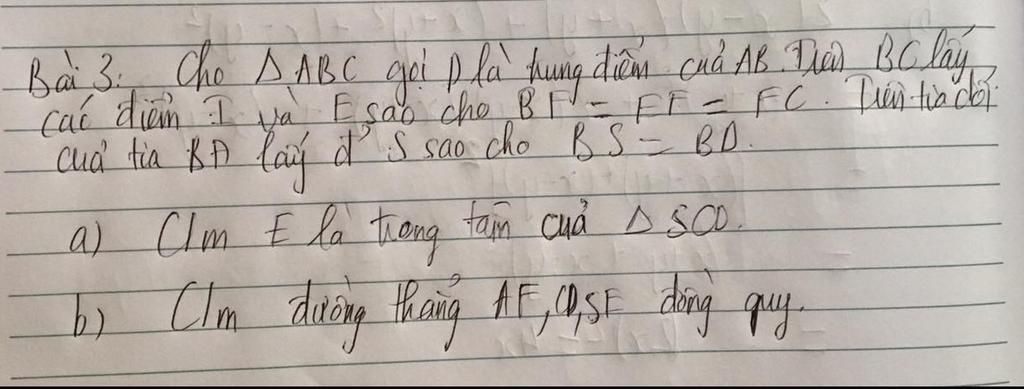 Bài 3: Cho Δ ABC gọi D là trung điểm của AB. Trên BC lấy
các điểm F và E sao cho BE = EF = FC. Trên tia đối
của tia BA lấy đ' S sao cho BS = BD.
a) C/m E là trọng tâm của Δ SCD.
b) C/m đường thẳng AF, CD, SE đồng quy.